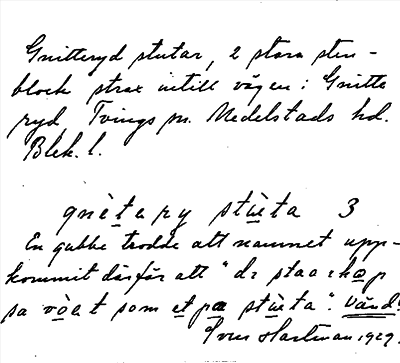 Gnitteryd stutar, 2 stora sten-
block strax intill vägen i Gnitte
ryd, Tvings sn. Medelstads hd.
Blek. l.
gnètary stùta 3
En gubbe trodde att namnet upp-
kommit därför att "dz staa
sa som et par stùta". Vänd!
Sven Hartman 1929.